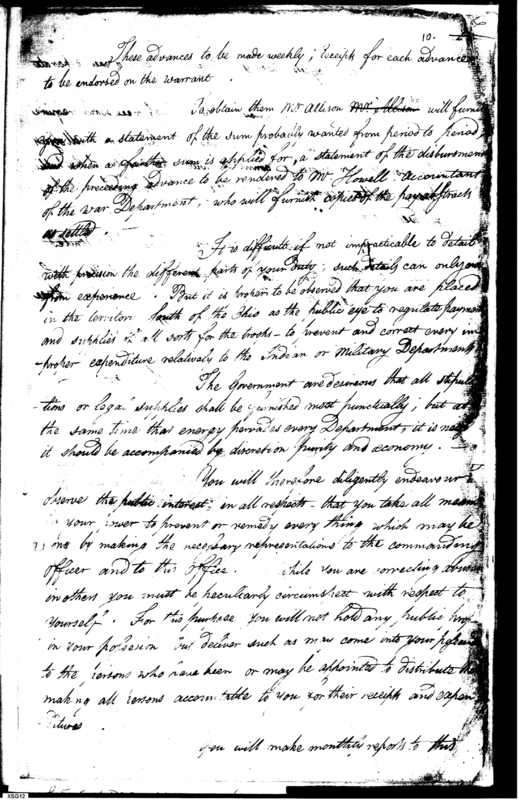 10.
These advances to be made weekly; receipts for each advance
to be endorsed on the warrant.
To obtain them Mr Allison Mr Allison will furn
with a statement of the sum probably wanted from period to period,
and when a further sum is applied for, a statement of the disbursment
of the preceeding advance to be rendered to Mr Howell accountant
of the war Department, who will furnish copies of the pay abstracts
as settled.
It is difficult if not impracticable to detail
with precision the different parts of your Duty, such details can only
from experience. But it is proper to be observed that you are placed
in the territory South of the Ohio as the public eye to regulate payment
and supplies of all sorts for the troops - to prevent and correct every im
-proper expenditure relatively to the Indian or Military Departments
The Government are desireous that all stipula
-tions or legal supplies shall be furnished most punctually, but at
the same time that energy pervades every Department, it is
it should be accompanied by discretion purity and œconomy.
You will therefore diligently endeavour to
observe the public interest, in all respects - that you take all means
in your power to prevent or remedy every thing which may be
by making the necessary representations to the commanding
officer and to this office. While you are correcting abuses
in others you must be peculiarly circumspect with respect to
yourself. For this purpose you will not hold any public
in your possession but deliver such as may come into your
to the persons who have been or may be appointed to distribute the
making all persons accountable to you for their receipts and expen
ditures.
You will make monthly reports to this
XSG12